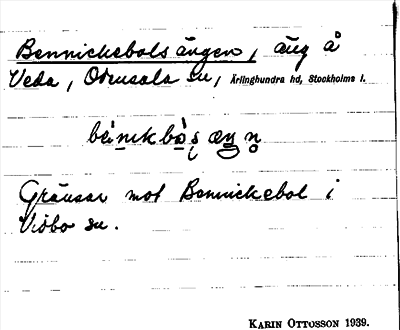 Bennickebols ängen, äng å
Veda, Odensala sn, Ärlinghundra hd, Stockholms l.
Gränsar mot Bennickebol i
Vidbo sn.
KARIN OTTOSSON 1939.